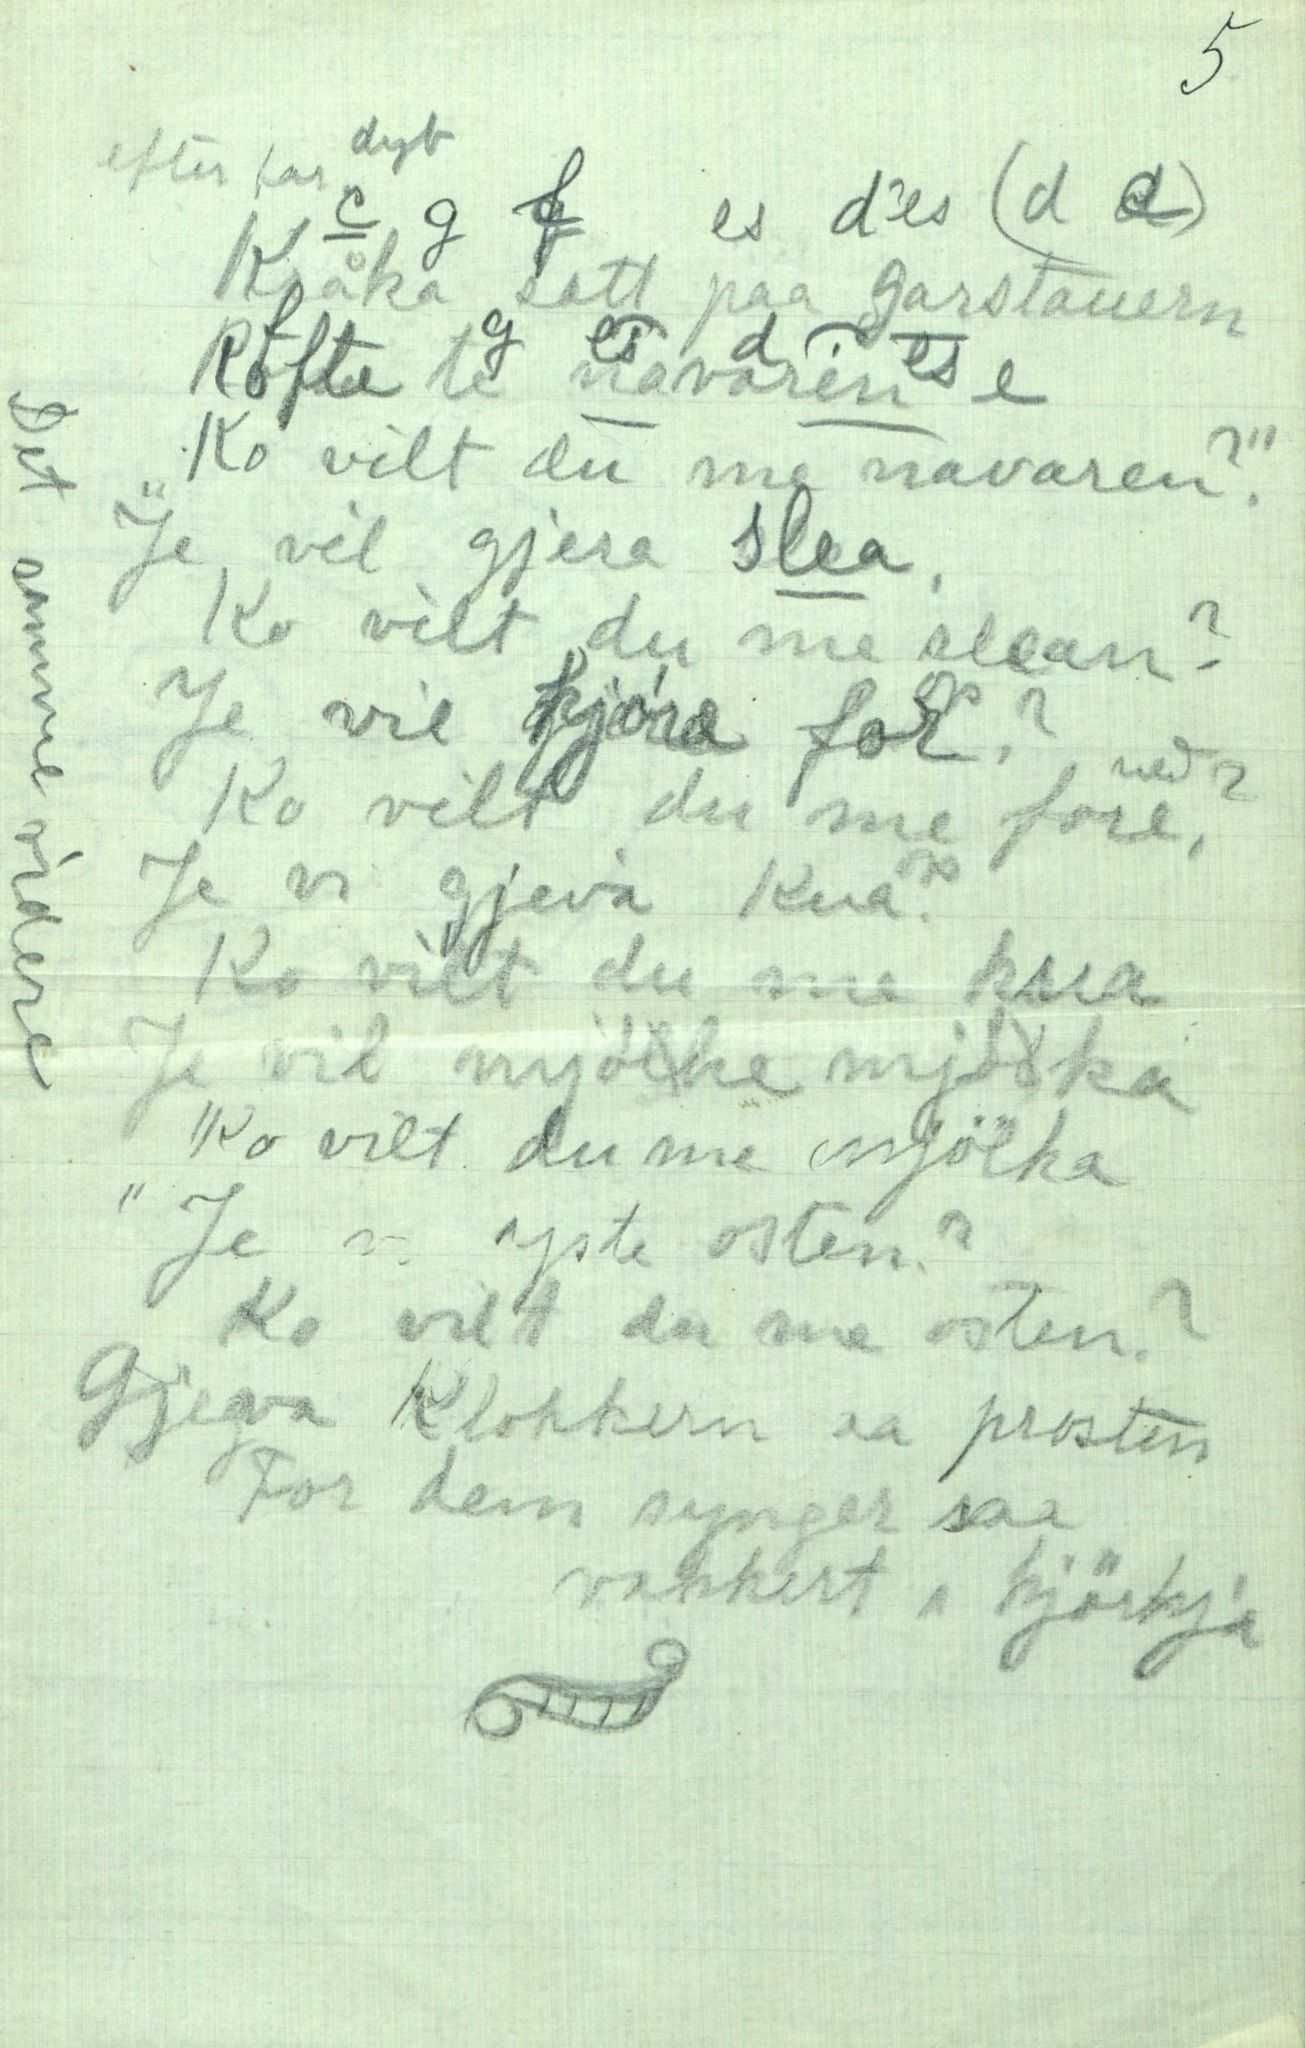 5
efter far dybt
c g f es d es (d d)
Kråka satt paa garstauern
f g es d es
Röfta te navaren e
Ko vilt du me navaren?"
"Je vil gjera slea,
Ko vilt du me slean?
Je vil kjöra for? op
Ko vilt du me fore, ned?
Je vi gjeva Kua? op
Ko vilt du me kua
Je vil mjölke mjölka
"Ko vilt du me mjölka
"Je vi yste osten?
Ko vilt du me osten?
Gjeva Klokkern aa prosten
For dem synger saa
vakkert i kjörkja
Det samme videre